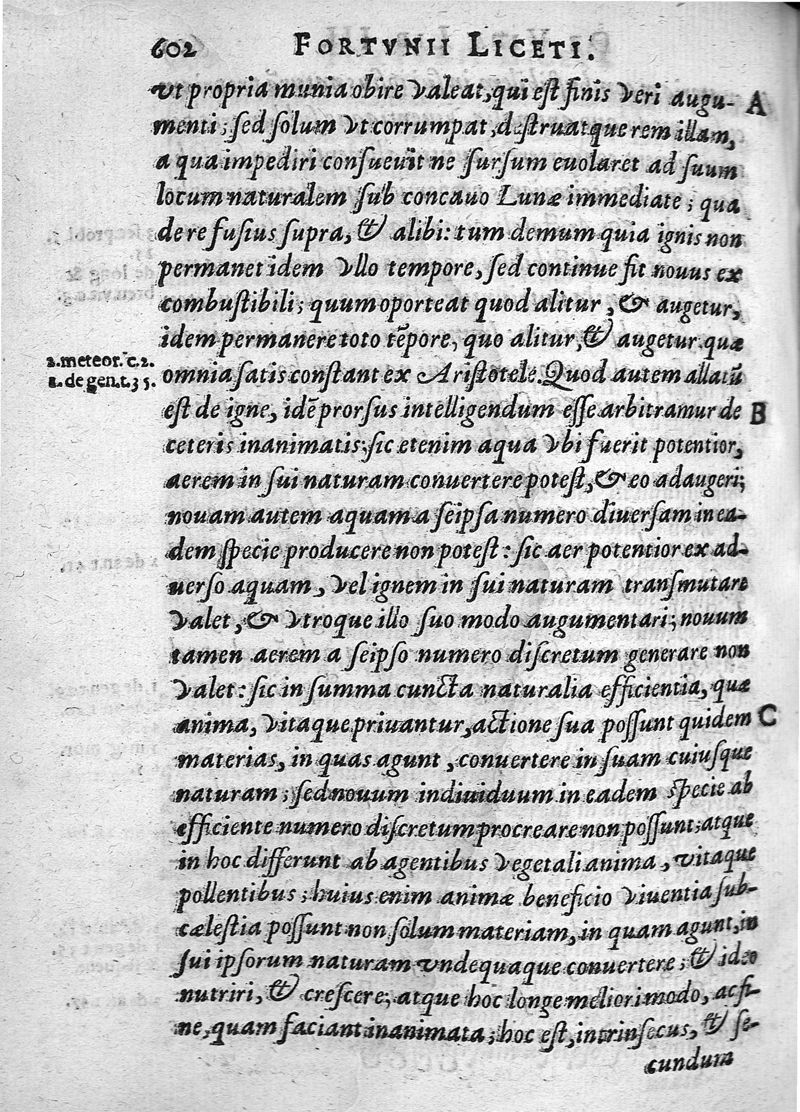 602 FORTVNII LICETI.
vt propria munia obire valeat, qui est finis veri augu- A
menti; sed solum vt corrumpat, destruatque rem illam,
a qua impediri consueuit ne sursum euolaret ad suum
locum naturalem sub concauo Lunæ immediate; qua
de re fusius supra, & alibi: tum demum quia ignis non
permanet idem vllo tempore, sed continue fit nouus ex
combustibili; quum oporteat quod alitur, & augetur,
idem permanere toto tẽpore, quo alitur, & augetur. quæ
2. meteor. c. 2.
2. de gen. t. 35.
omnia satis constant ex Aristotele. Quod autem allatũ
est de igne, idẽ prorsus intelligendum esse arbitramur de B
ceteris inanimatis; sic etenim aqua vbi fuerit potentior,
aerem in sui naturam conuertere potest, & eo adaugeri;
nouam autem aquam a seipsa numero diuersam in ea-
dem specie producere non potest: sic aer potentior ex ad-
uerso aquam, vel ignem in sui naturam transmutare
valet, & vtroque illo suo modo augumentari; nouum
tamen aerem a seipso numero discretum generare non
valet: sic in summa cuncta naturalia efficientia, quæ
anima, vitaque priuantur, actione sua possunt quidem C
materias, in quas agunt, conuertere in suam cuiusque
naturam; sed nouum indiuiduum in eadem specie ab
efficiente numero discretum procreare non possunt; atque
in hoc differunt ab agentibus vegetali anima, vitaque
pollentibus; huius enim animæ beneficio viuentia sub-
cælestia possunt non solum materiam, in quam agunt, in
sui ipsorum naturam vndequaque conuertere; & ideo
nutriri, & crescere; atque hoc longe meliori modo, ac fi-
ne, quam faciant inanimata; hoc est, intrinsecus, & se-
cundum